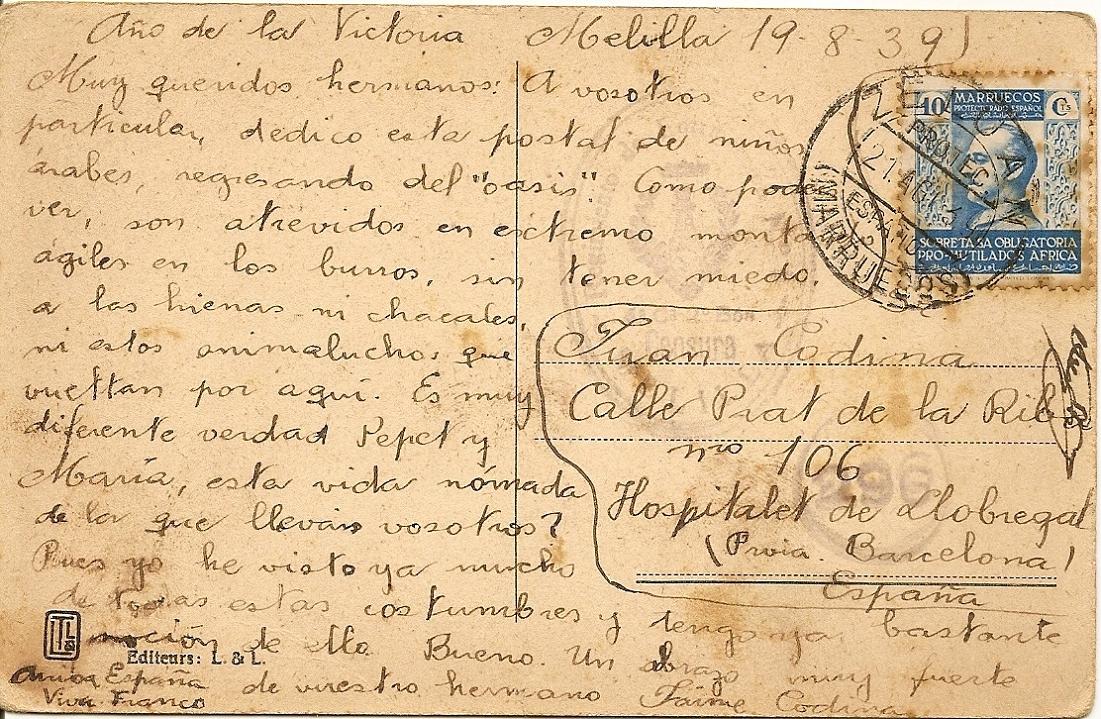 Año de la Victoria Melilla 19-8-39
Muy queridos hermanos: A vosotros en
particular, dedico esta postal de niños
árabes, regresando del "oasis". Como pode
ver, son atrevidos en extremo monta
ágiles en los burros, sin tener miedo,
a las hienas ni chacales,
ni estos animaluchos que
vueltan por aquí. Es muy
diferente verdad Pepet y
María, esta vida nómada
de la que lleváis vosotros?
Pues yo he visto ya mucho
de todas estas costumbres y tengo ya bastante
noción de ello Bueno. Un abrazo muy fuerte
de vuestro hermano Jaime Codina
Arriba España
Viva Franco
Editeurs: L. & L.
10 MARRUECOS Cts
PROTECTORADO ESPAÑOL
SOBRETASA OBLIGATORIA
PRO-MUTILADOS AFRICA
21 AGO 3
MARRUECOS
Juan Codina
Calle Prat de la Rib
nro 106
Hospitalet de Llobregat
(Prvia. Barcelona)
España